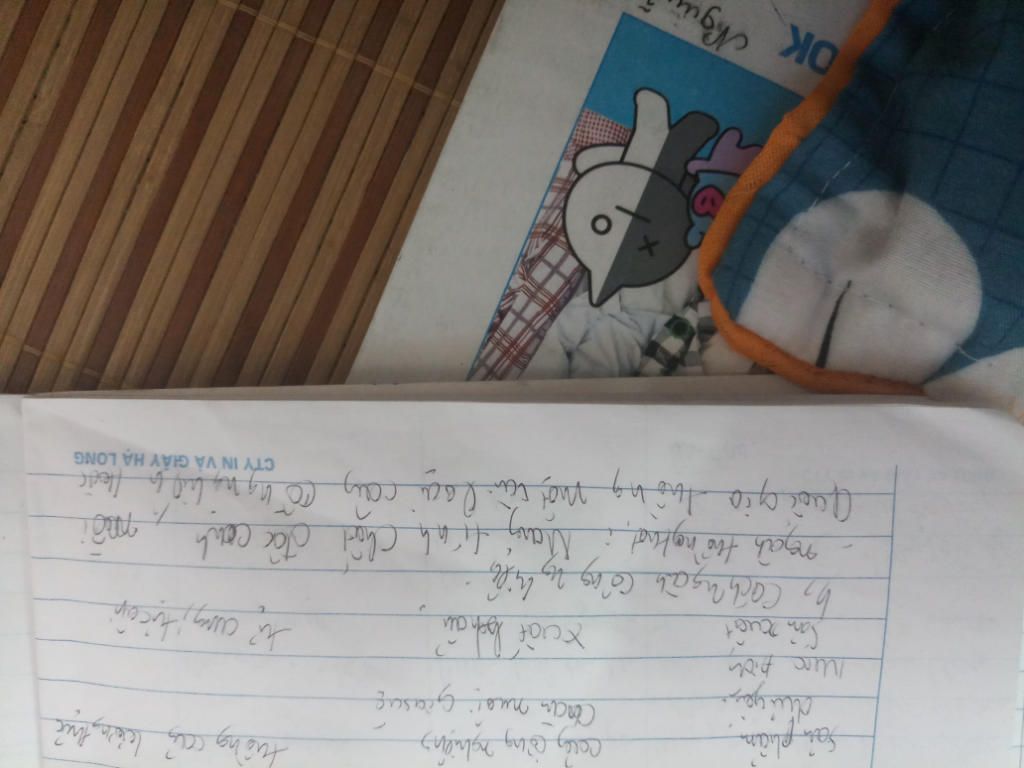 Sản phẩm cây công nghiệp, trồng cây lương thực
chủ yếu chăn nuôi gia súc
Mục đích
Sản xuất xuất khẩu tự cung, tự cấp
b, Các ngành công nghiệp
- ngành trồng trọt: Mang tính chất độc canh, mỗi
Quốc gia trồng một vài loại cây công nghiệp hoặc
CTY IN VÀ GIẤY HẠ LONG
OK